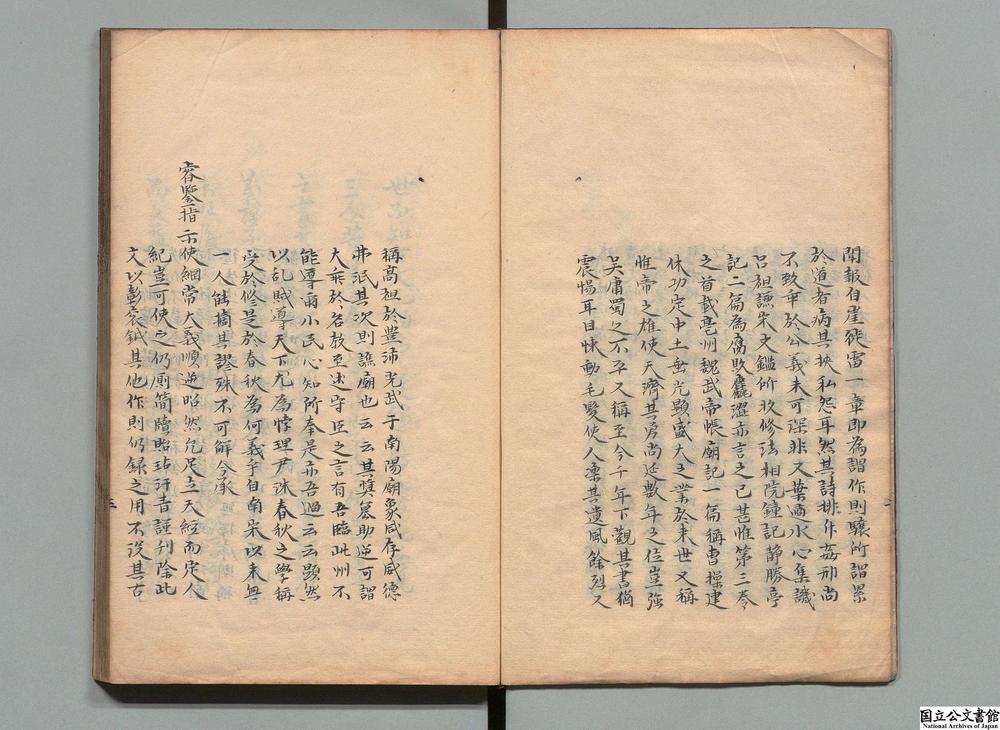 聞報自崖徙雷一章即為謂作則驤所謂累
於道者病其挾私怨耳然其詩排斥姦邪尚
不致乖於公義未可深非又葉適水心集譏
呂祖謙宋文鑑所收修法相院鐘記靜勝亭
記二篇為腐敗麤澀亦言之已甚惟第三卷
之首載亳州魏武帝帳廟記一篇稱曹操建
休功定中土垂光顯盛大之業於来世又稱
惟帝之雄使天濟其勇尚延數年之位豈強
吳庸蜀之不平又稱至今千年下觀其書猶
震惕耳目悚動毛髮使人凜其遺風餘烈又
稱髙祖於豊沛光武于南陽廟象咸存威德
弗泯其次則譙廟也云云其奬簒助逆可謂
大乖於名教至述守臣之言有吾臨此州不
能導爾小民心知所奉是亦吾過云云顯然
以亂賊導天下尤為悖理尹洙春秋之學稱
受於修是於春秋為何義乎自南宋以来無
一人能摘其謬殊不可解今承
睿鑒指示使綱常大義順逆昭然允足立天經而定人
紀豈可使之仍厠簡牘貽玷汗青謹刋除此
文以彰衮鉞其他作則仍録之用不没其古
国立公文書館
National Archives of Japan